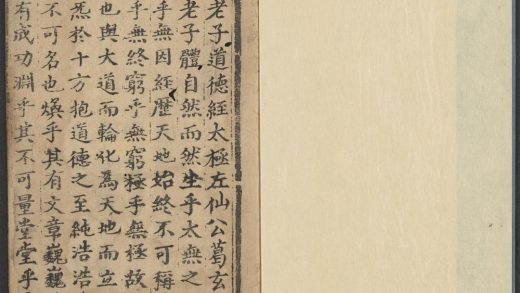 老子道德經太極左仙公葛玄
老子體自然而然生乎太無之
乎無因經歷天地始終不可稱
乎無終窮乎無窮極乎無極故
也與大道而輪化為天地而立
炁於十方抱道德之至純浩浩
不可名也煥乎其有文章巍巍
有成功淵乎其不可量堂堂乎